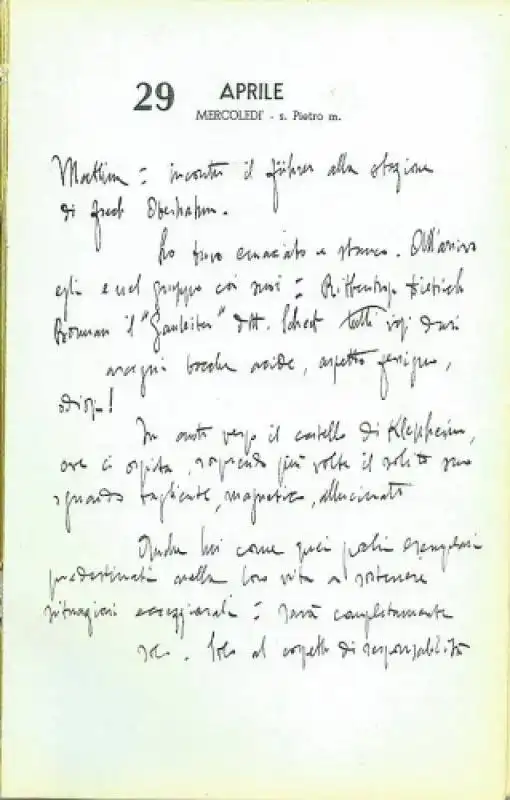 29 APRILE
MERCOLEDI' - s. Pietro m.
Mattina = incontro il führer alla stazione
di
Lo trovo emaciato e stanco. All'arrivo
egli è nel gruppo coi suoi = Ribbentrop Dietrich
Borman il "Gauleiter" dott. Scheel tutti visi duri
arcigni bocche acide, aspetto ferigno,
odioso!
In auto verso il castello di Klessheim,
ove ci ospita, sorprendo più volte il solito suo
sguardo tagliente, magnetico, allucinato
Anche lui come quei pochi esemplari
predestinati nella loro vita a sostenere
situazioni eccezionali = sarà completamente
solo. Solo al cospetto di responsabilità